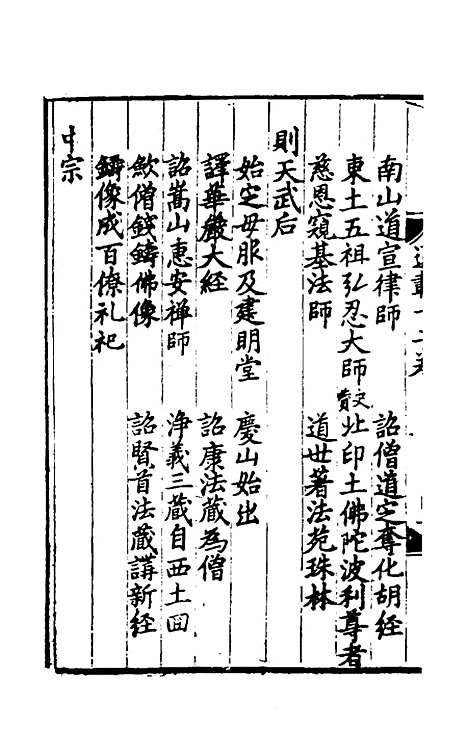 南山道宣律師 詔僧道定奪化胡經
東土五祖弘忍大師 北印土佛陀波利尊者
慈恩窺基法師 道世著法苑珠林
則天武后
始定母服及建明堂 慶山始出
譯華嚴大經 詔康法藏為僧
詔嵩山惠安禪師 淨義三藏自西土回
歛僧錢鑄佛像 詔賢首法藏講新經
鑄像成百僚礼祀
中宗